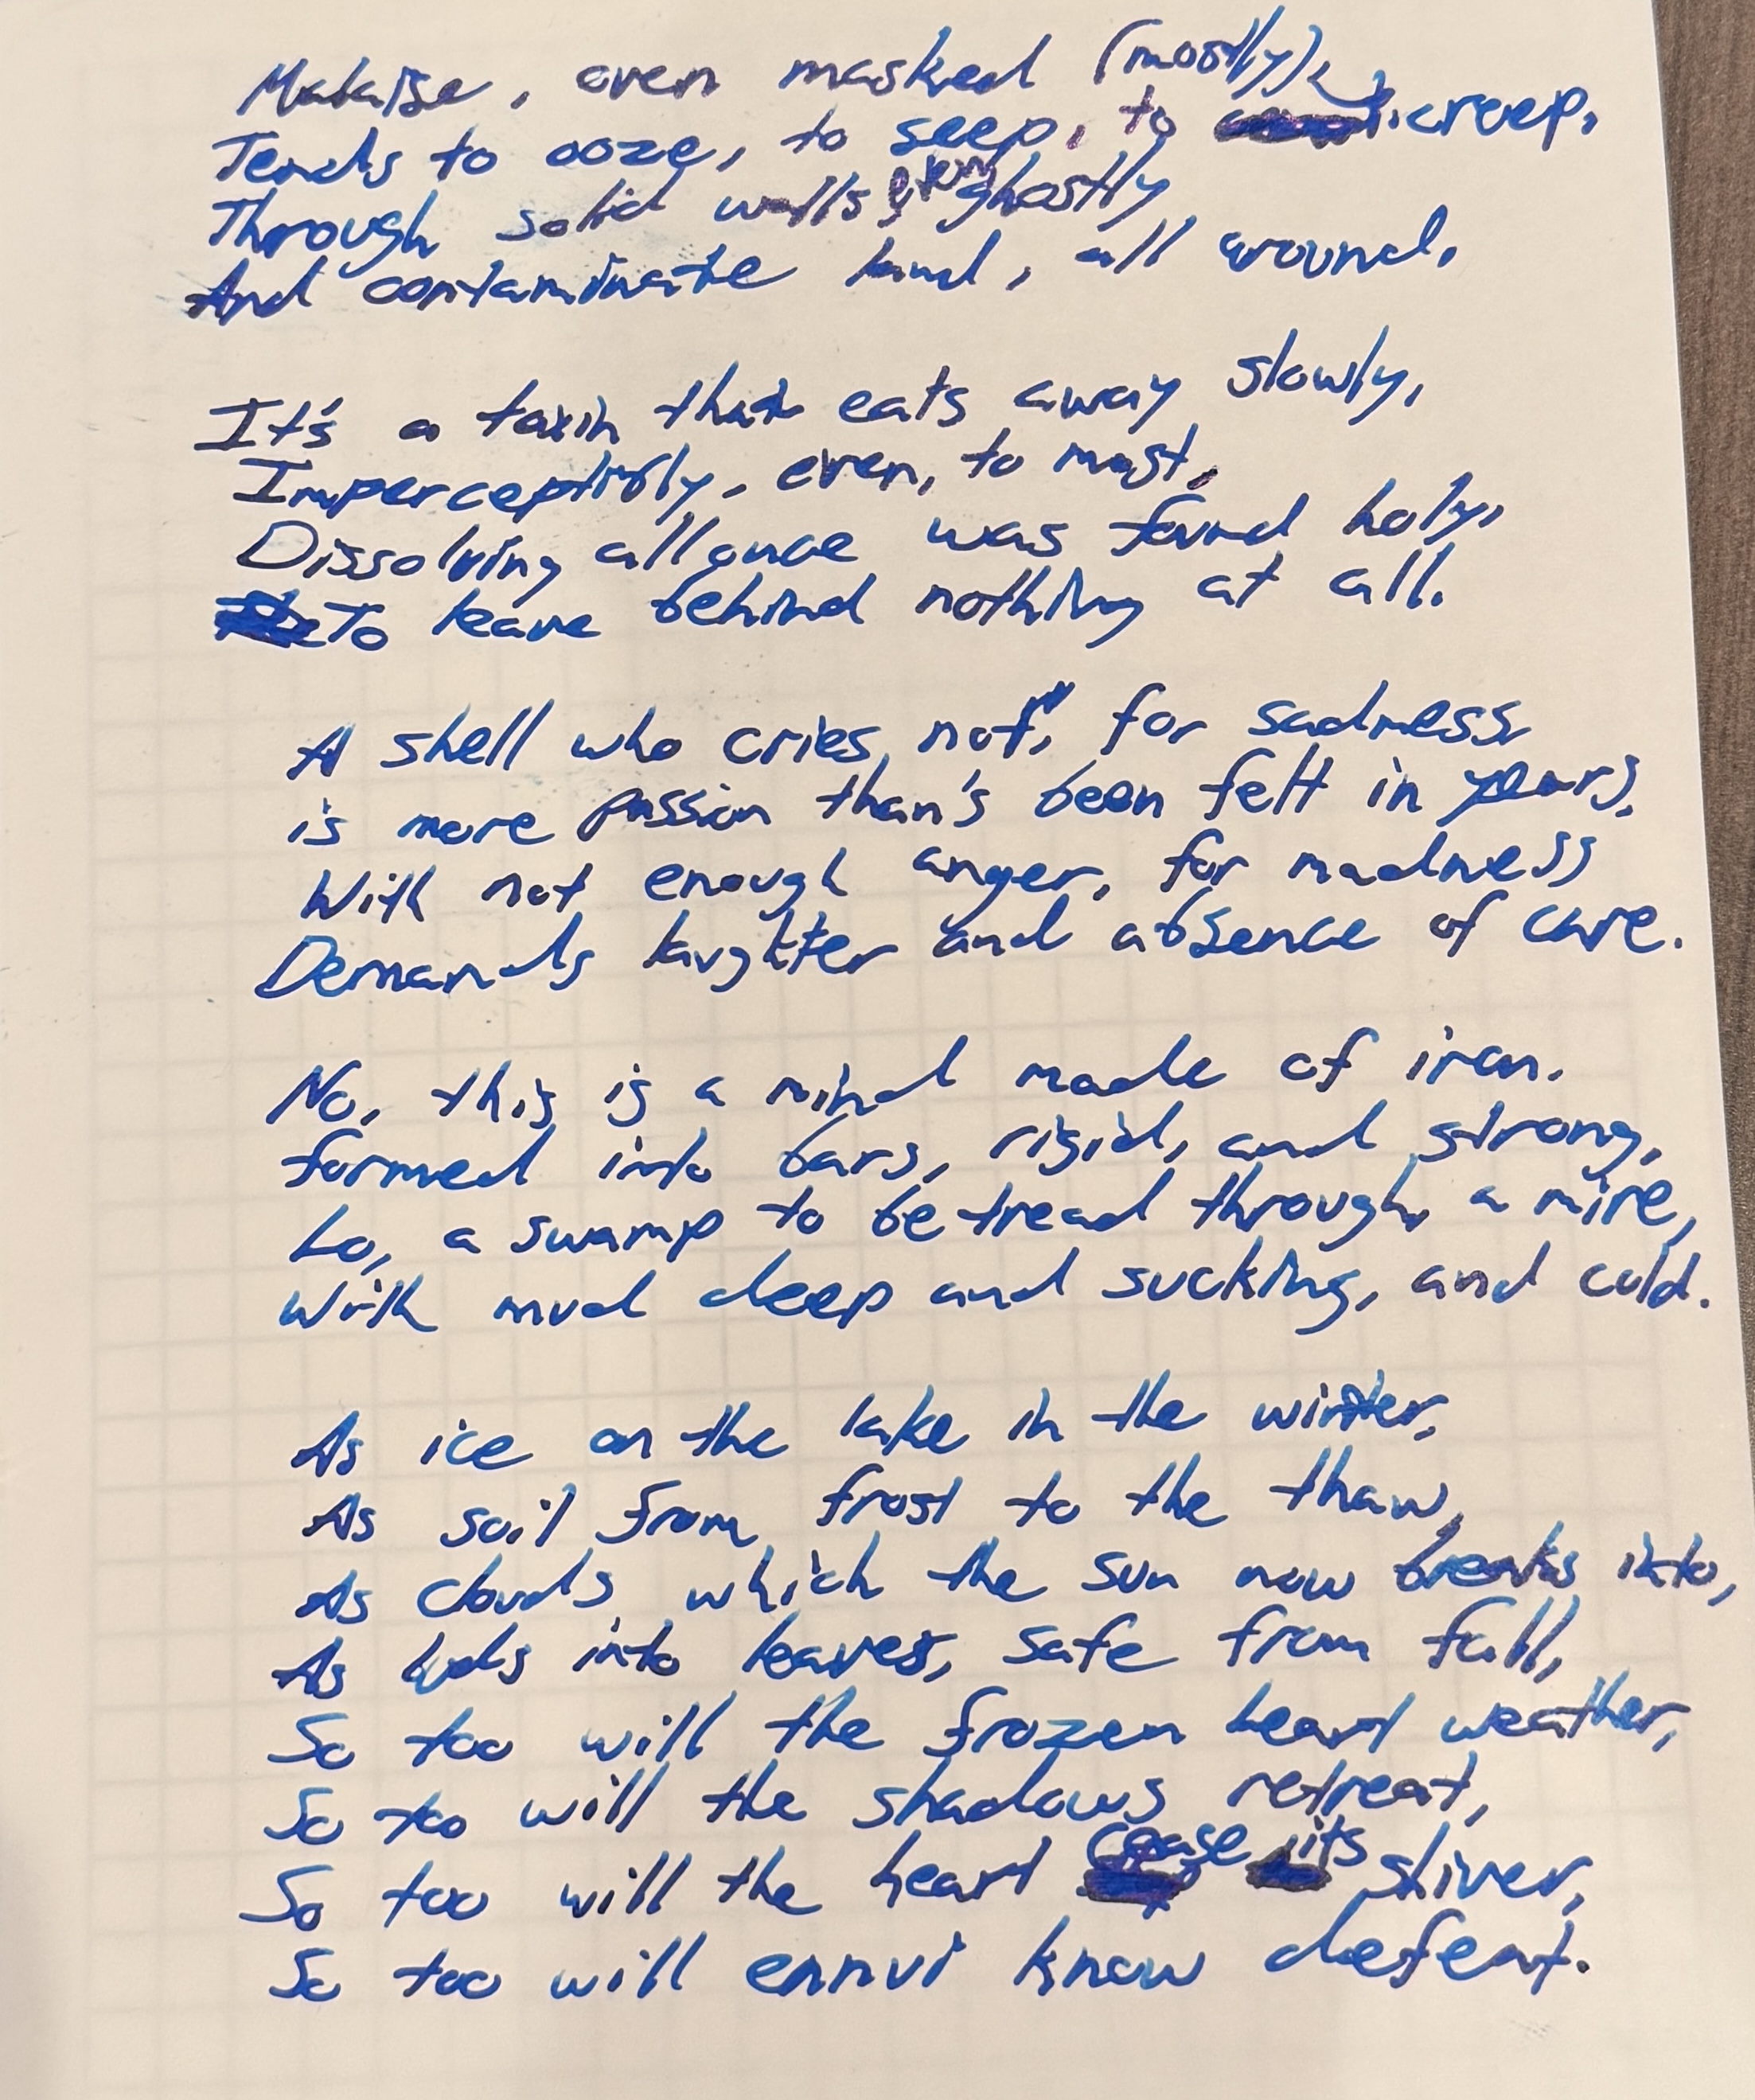 Malaise, even masked (mostly),
Tends to ooze, to seep, to creep,
Through solid walls, even ghostly
And contaminate land, all around.
It's a toxin that eats away slowly,
Imperceptibly, even, to most,
Dissolving all once was found holy,
To leave behind nothing at all.
A shell who cries not, for sadness
is more passion than's been felt in years,
With not enough anger, for madness
Demands laughter and absence of care.
No, this is a mind made of iron,
formed into bars, rigid, and strong,
Lo, a swamp to be tread through, a mire,
With mud deep and sucking, and cold.
As ice on the lake in the winter,
As soil from frost to the thaw,
As clouds which the sun now breaks into,
As buds into leaves, safe from fall,
So too will the frozen heart weather,
So too will the shadows retreat,
So too will the heart cease its shiver,
So too will ennui know defeat.